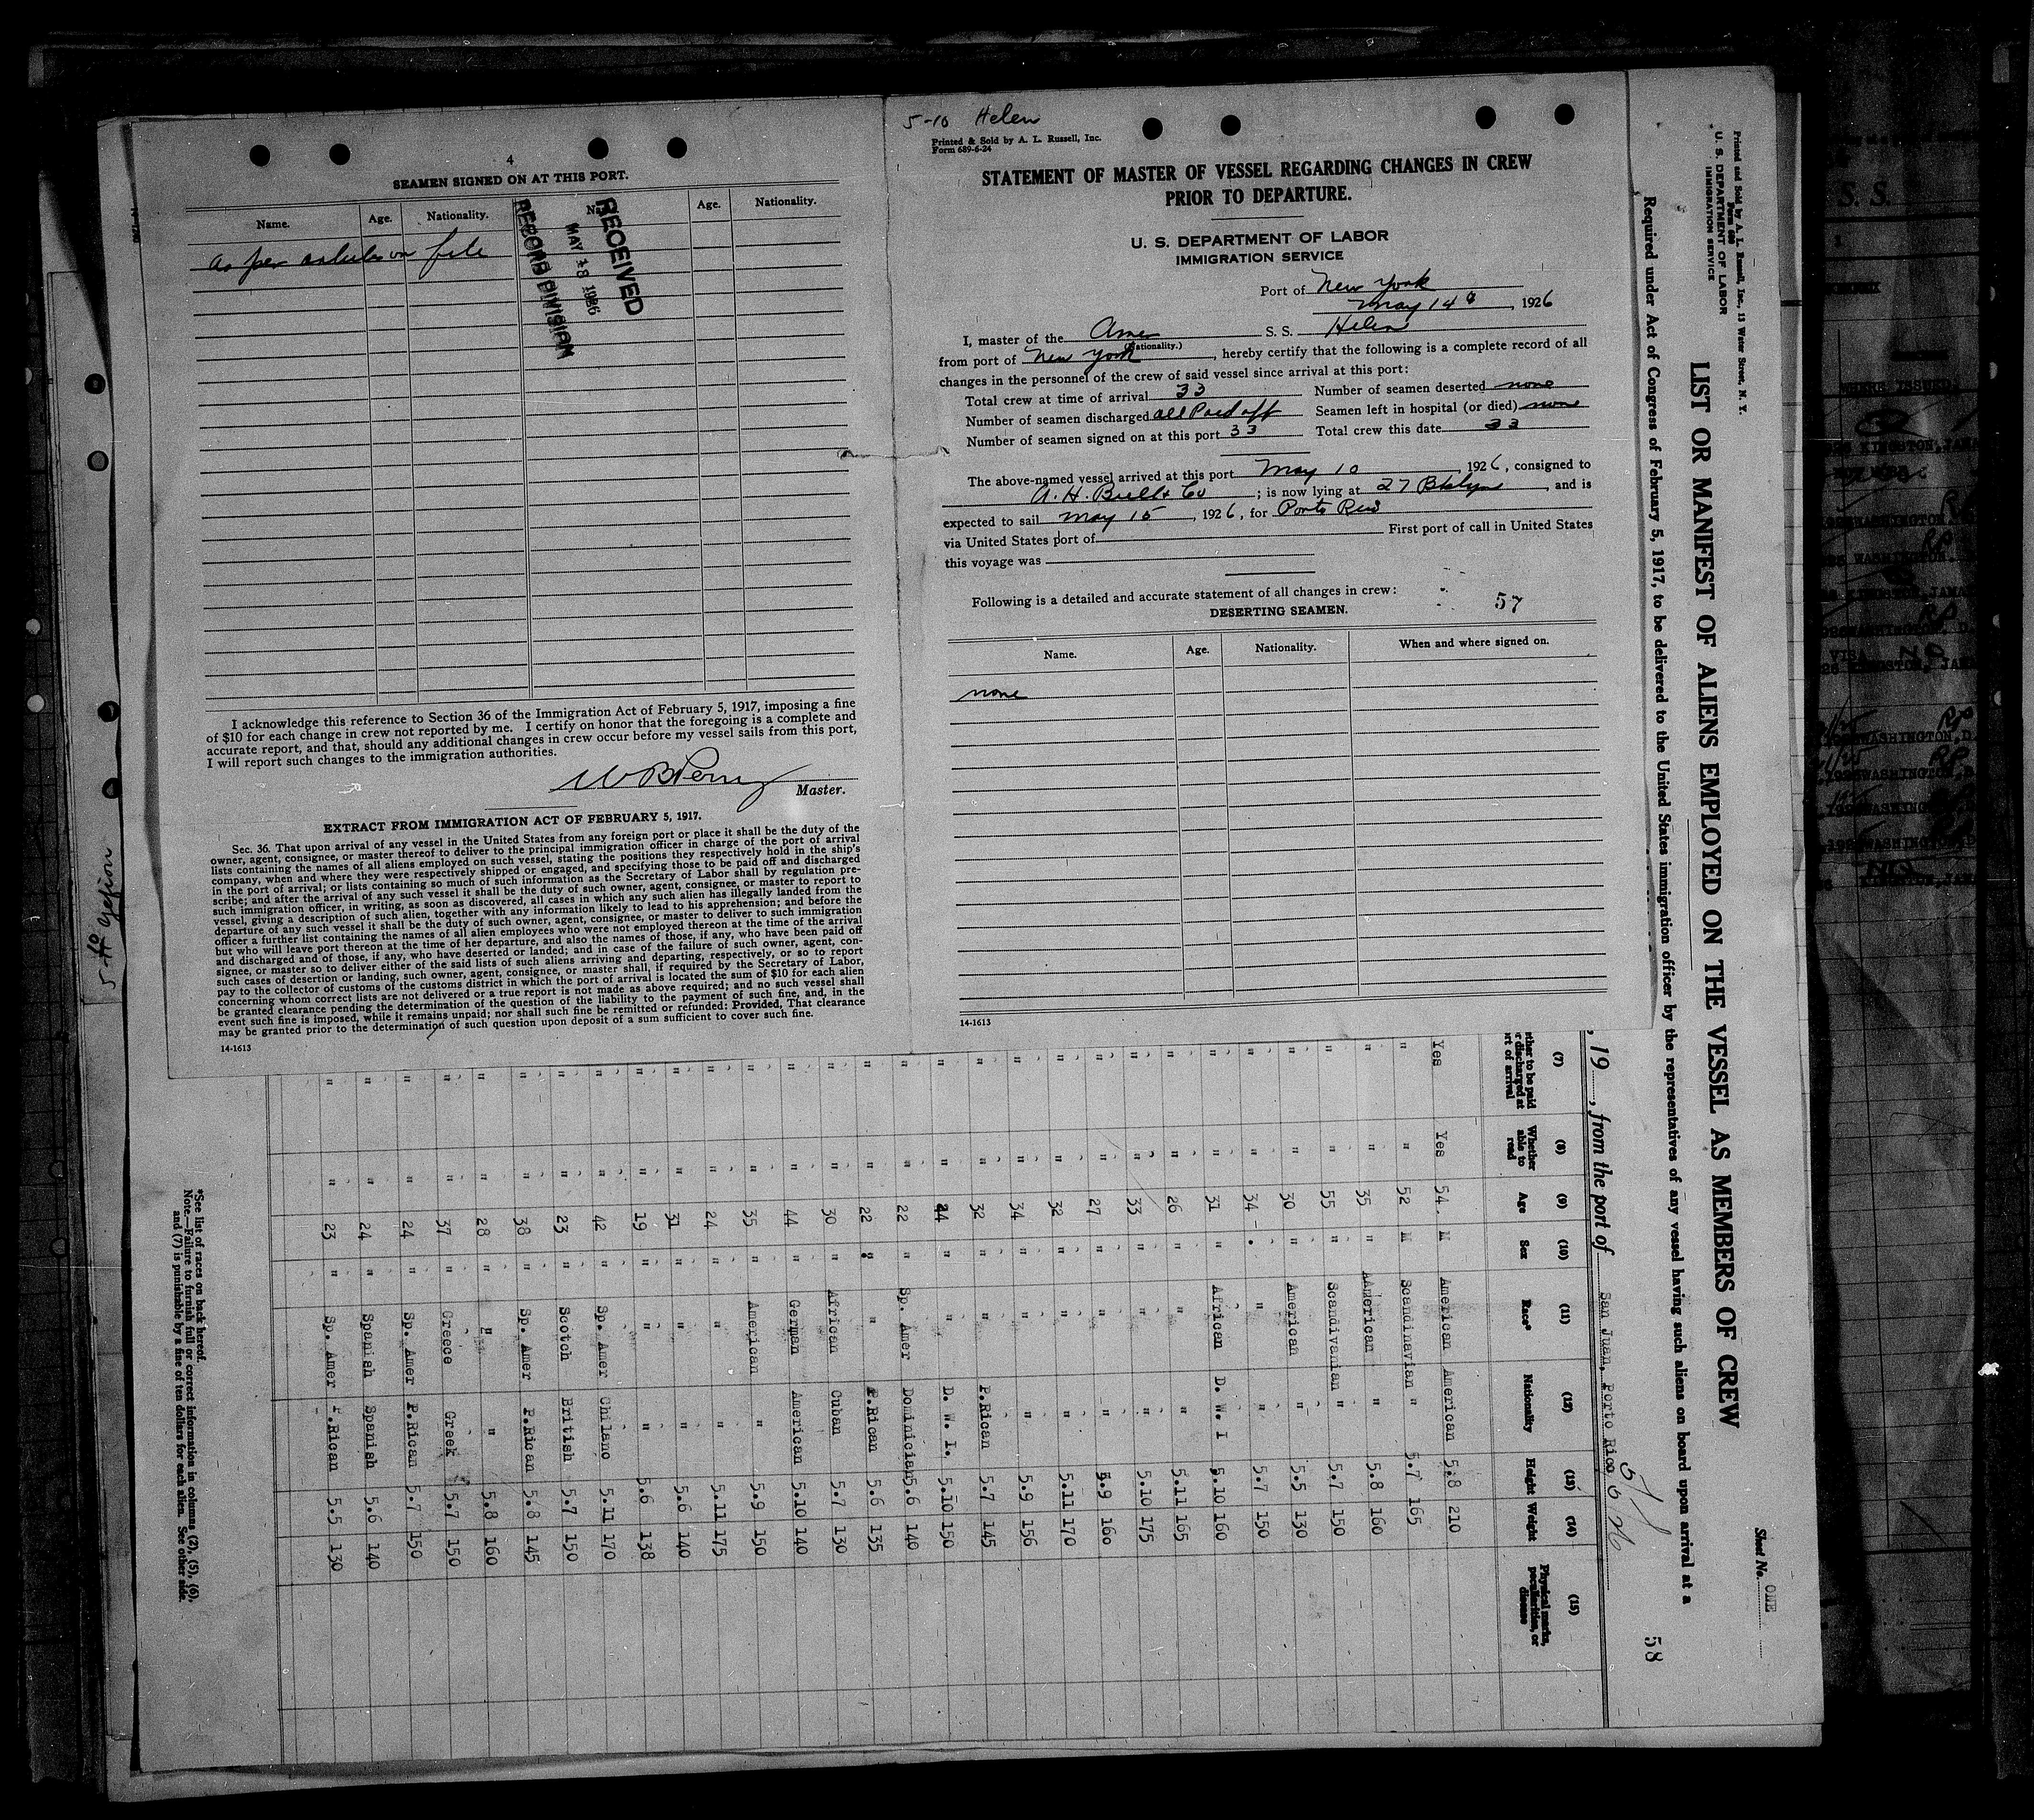 4
SEAMEN SIGNED ON AT THIS PORT.
Name. Age. Nationality. Age. Nationality.
As per on file
RECEIVED
MAY 18 1926
RECORD DIVISION
I acknowledge this reference to Section 36 of the Immigration Act of February 5, 1917, imposing a fine
of $10 for each change in crew not reported by me. I certify on honor that the foregoing is a complete and
accurate report, and that, should any additional changes in crew occur before my vessel sails from this port,
I will report such changes to the immigration authorities.
Master.
EXTRACT FROM IMMIGRATION ACT OF FEBRUARY 5, 1917.
Sec. 36. That upon arrival of any vessel in the United States from any foreign port or place it shall be the duty of the
owner, agent, consignee, or master thereof to deliver to the principal immigration officer in charge of the port of arrival
lists containing the names of all aliens employed on such vessel, stating the positions they respectively hold in the ship's
company, when and where they were respectively shipped or engaged, and specifying those to be paid off and discharged
in the port of arrival; or lists containing so much of such information as the Secretary of Labor shall by regulation pre-
scribe; and after the arrival of any such vessel it shall be the duty of such owner, agent, consignee, or master to report to
such immigration officer, in writing, as soon as discovered, all cases in which any such alien has illegally landed from the
vessel, giving a description of such alien, together with any information likely to lead to his apprehension; and before the
departure of any such vessel it shall be the duty of such owner, agent, consignee, or master to deliver to such immigration
officer a further list containing the names of all alien employees who were not employed thereon at the time of the arrival
but who will leave port thereon at the time of her departure, and also the names of those, if any, who have been paid off
and discharged and of those, if any, who have deserted or landed; and in case of the failure of such owner, agent, con-
signee, or master so to deliver either of the said lists of such aliens arriving and departing, respectively, or so to report
such cases of desertion or landing, such owner, agent, consignee, or master shall, if required by the Secretary of Labor,
pay to the collector of customs of the customs district in which the port of arrival is located the sum of $10 for each alien
concerning whom correct lists are not delivered or a true report is not made as above required; and no such vessel shall
be granted clearance pending the determination of the question of the liability to the payment of such fine, and, in the
event such fine is imposed, while it remains unpaid; nor shall such fine be remitted or refunded: Provided, That clearance
may be granted prior to the determination of such question upon deposit of a sum sufficient to cover such fine.
14-1613
5-10 Helen
Printed & Sold by A. L. Russell, Inc.
Form 689-6-24
STATEMENT OF MASTER OF VESSEL REGARDING CHANGES IN CREW
PRIOR TO DEPARTURE.
U. S. DEPARTMENT OF LABOR
IMMIGRATION SERVICE
Port of New York
May 14, 1926
I, master of the Amer S. S. Helen
(Nationality.)
from port of New York, hereby certify that the following is a complete record of all
changes in the personnel of the crew of said vessel since arrival at this port:
Total crew at time of arrival 33 Number of seamen deserted none
Number of seamen discharged all Paid off Seamen left in hospital (or died) none
Number of seamen signed on at this port 33 Total crew this date 33
The above-named vessel arrived at this port May 10, 1926, consigned to
A. H. Bull & Co; is now lying at 27 Bklyn, and is
expected to sail May 15, 1926, for Porto Rico
via United States port of First port of call in United States
this voyage was
Following is a detailed and accurate statement of all changes in crew:
57
DESERTING SEAMEN.
Name. Age. Nationality. When and where signed on.
none
14-1613
Printed and Sold by A. L. Russell, Inc., 13 Water Street, N. Y.
Form 680
U. S. DEPARTMENT OF LABOR
IMMIGRATION SERVICE
Sheet No. ONE
LIST OR MANIFEST OF ALIENS EMPLOYED ON THE VESSEL AS MEMBERS OF CREW
Required under Act of Congress of February 5, 1917, to be delivered to the United States immigration officer by the representatives of any vessel having such aliens on board upon arrival at a
58
, 19 , from the port of San Juan, Porto Rico
(7) (8) (9) (10) (11) (12) (13) (14) (15)
Whether able to read Age Sex Race* Nationality Height Weight Physical marks, peculiarities, or disease
Yes Yes 54. M American American 5.8 210
" " 52 M Scandinavian " 5.7 165
" " 35 " American " 5.8 160
" " 55 " Scandivanian " 5.7 150
" " 30 " American " 5.5 130
" " 34 " " " 5.7 150
" " 31 " African D. W. I 5.10 160
" " 26 " " " 5.11 165
" " 33 " " " 5.10 175
" " 27 " " " 5.9 160
" " 32 " " " 5.11 170
" " 34 " " " 5.9 156
" " 32 " " P.Rican 5.7 145
" " 44 " " D. W. I. 5.10 150
" " 22 " Sp. Amer Dominician 5.6 140
" " 22 " " P.Rican 5.6 135
" " 30 " African Cuban 5.7 130
" " 44 " German American 5.10 140
" " 35 " American " 5.9 150
" " 24 " " " 5.11 175
" " 31 " " " 5.6 140
" " 19 " " " 5.6 138
" " 42 " Sp. Amer Chilano 5.11 170
" " 23 " Scotch British 5.7 150
" " 38 " Sp. Amer P.Rican 5.8 145
" " 28 " " " 5.8 160
" " 37 " Greece Greek 5.7 150
" " 24 " Sp. Amer P.Rican 5.7 150
" " 24 " Spanish Spanish 5.6 140
" " 23 " Sp. Amer P.Rican 5.5 130
*See list of races on back hereof.
Note.—Failure to furnish full or correct information in columns (2), (5), (6),
and (7) is punishable by a fine of ten dollars for each alien. See other side.